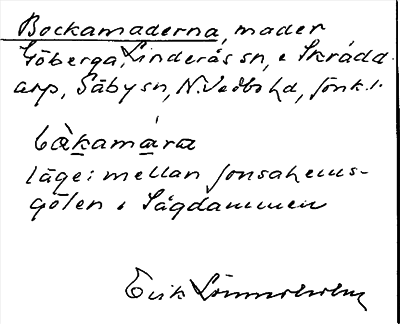 Bockamaderna, mader
Göberga, Linderås sn, o Skrädd-
arp, Säby sn, N. Vedbo hd, Jönk. l.
bɷ̀kamára
läge: mellan Jonsahems-
gölen o Sågdammen
Erik Lönnerholm